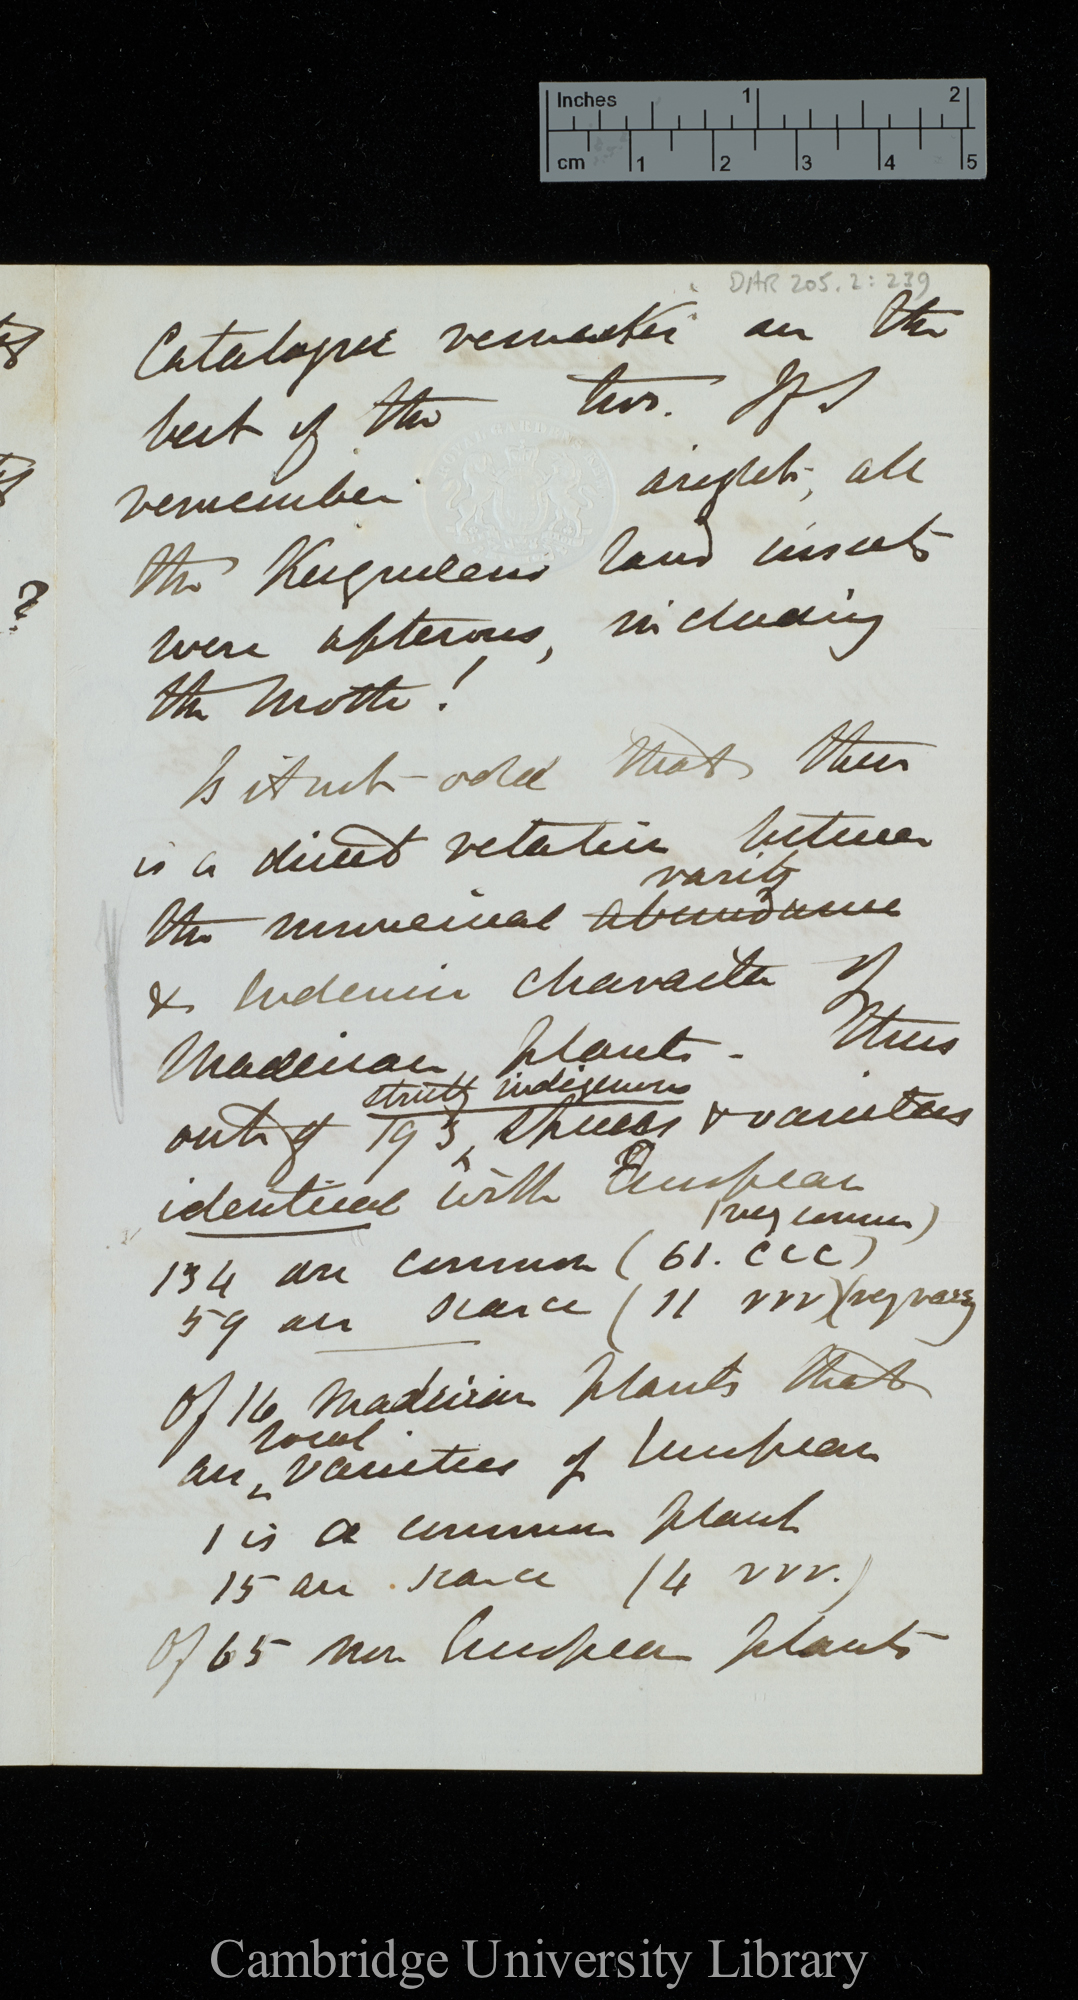 Inches 1 2
cm 1 2 3 4 5
DAR 205.2: 239
Catalogue remarks are the
best of the two. If I
remember aright, all
the Kerguelens land insects
were apterous, including
the moth!
?
Is it not odd that there
is a direct relation between
rarity
the numerical abundance
& endemic character of
Madeiran plants. Thus
strictly indigenous
out of 193 species & varieties
identical with European
(very common)
134 are common (61. ccc)
59 are scarce (11 rrr)(very rare)
Of 16 Madeiran plants that
local
are varieties of European
1 is a common plant
15 are scarce (4 rrr.)
Of 65 non European plants
Cambridge University Library